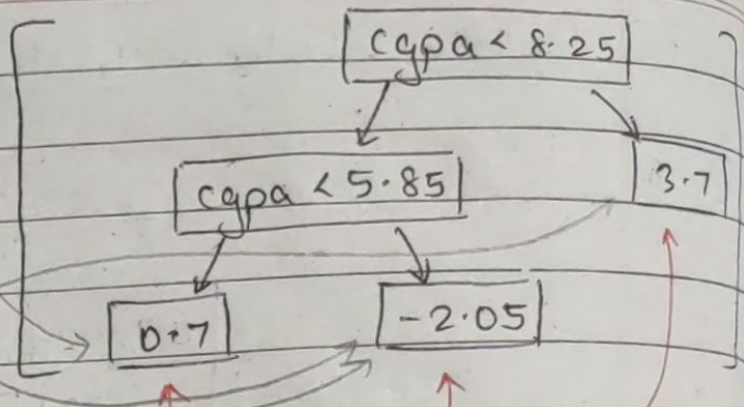 cgpa < 8.25
cgpa < 5.85
3.7
0.7
-2.05